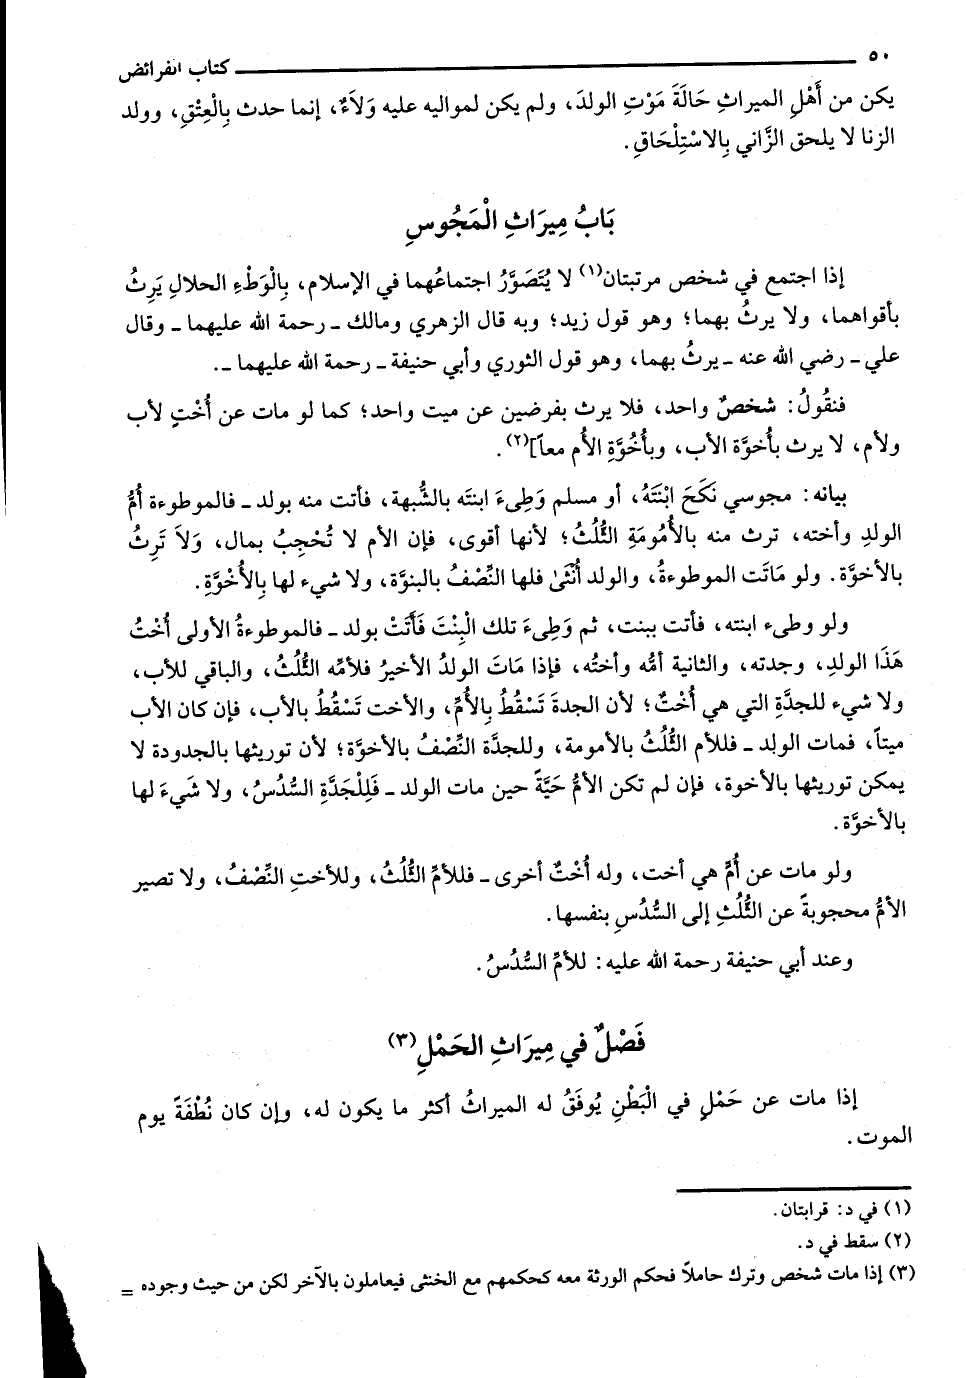 ٥٠ كتاب الفرائض
يكن من أَهْلِ الميراثِ حَالَةَ مَوْتِ الولدَ، ولم يكن لمواليه عليه وَلاَءٌ، إنما حدث بِالْعِتْقِ، وولد
الزنا لا يلحق الزَّاني بِالاسْتِلْحَاقِ.
بَابُ مِيرَاثِ الْمَجُوسِ
إذا اجتمع في شخص مرتبتان(١) لا يُتَصَوَّرُ اجتماعُهما في الإسلام، بِالْوَطْءِ الحلالِ يَرِثُ
بأقواهما، ولا يرثُ بهما؛ وهو قول زيد؛ وبه قال الزهري ومالك ـ رحمة الله عليهما ـ وقال
علي ـ رضي الله عنه ـ يرثُ بهما، وهو قول الثوري وأبي حنيفة ـ رحمة الله عليهما ـ.
فنقُولُ: شخصٌ واحد، فلا يرث بفرضين عن ميت واحد؛ كما لو مات عن أُخْتٍ لأب
ولأم، لا يرث بأخوَّة الأب، وبأُخُوَّةِ الأُم معاً](٢).
بيانه: مجوسي نَكَحَ ابْنَتَهُ، أو مسلم وَطِىءَ ابنتَه بالشُّبهة، فأتت منه بولد ـ فالموطوءة أُمُّ
الولدِ وأخته، ترث منه بالأُمُومَةِ الثُّلُثُ؛ لأنها أقوى، فإن الأم لا تُحْجِبُ بمال، وَلاَ تَرِثُ
بالأخوَّة. ولو مَاتَت الموطوءةُ، والولد أُنْثَىٰ فلها النِّصْفُ بالبنوَّة، ولا شيء لها بِالأُخْوَّةِ.
ولو وطىء ابنته، فأتت ببنت، ثم وَطِىءَ تلك الْبِنْتَ فَأَتَتْ بولد ـ فالموطوءةُ الأولى أُخْتُ
هَذَا الولدِ، وجدته، والثانية أمُّه وأختُه، فإذا مَاتَ الولدُ الأخيرُ فلأمِّه الثُّلُثُ، والباقي للأب،
ولا شيء للجدَّةِ التي هي أُخْتٌ؛ لأن الجدة تَسْقُطُ بِالأُمِّ، والأخت تَسْقُطُ بالأب، فإن كان الأب
ميتاً، فمات الولد ـ فللأم الثُّلُثُ بالأمومة، وللجدَّة النِّصْفُ بالأخوَّة؛ لأن توريثها بالجدودة لا
يمكن توريثها بالأخوة، فإن لم تكن الأمُّ حَيَّةً حين مات الولد ـ فَلِلْجَدَّةِ السُّدُسُ، ولا شَيءَ لها
بالأخوَّة.
ولو مات عن أُمٍّ هي أخت، وله أُخْتٌ أخرى ـ فللأمِّ الثُّلُثُ، وللأختِ النِّصْفُ، ولا تصير
الأمُّ محجوبةً عن الثُّلُثِ إلى السُّدُسِ بنفسها.
وعند أبي حنيفة رحمة الله عليه: للأمِّ السُّدُسُ.
فَصْلٌ في مِيرَاثِ الحَمْلِ(٣)
إذا مات عن حَمْلٍ في الْبَطْنِ يُوقَفُ له الميراثُ أكثر ما يكون له، وإن كان نُطْفَةً يوم
الموت.
(١) في د: قرابتان.
(٢) سقط في د.
(٣) إذا مات شخص وترك حاملاً فحكم الورثة معه كحكمهم مع الخنثى فيعاملون بالآخر لكن من حيث وجوده =